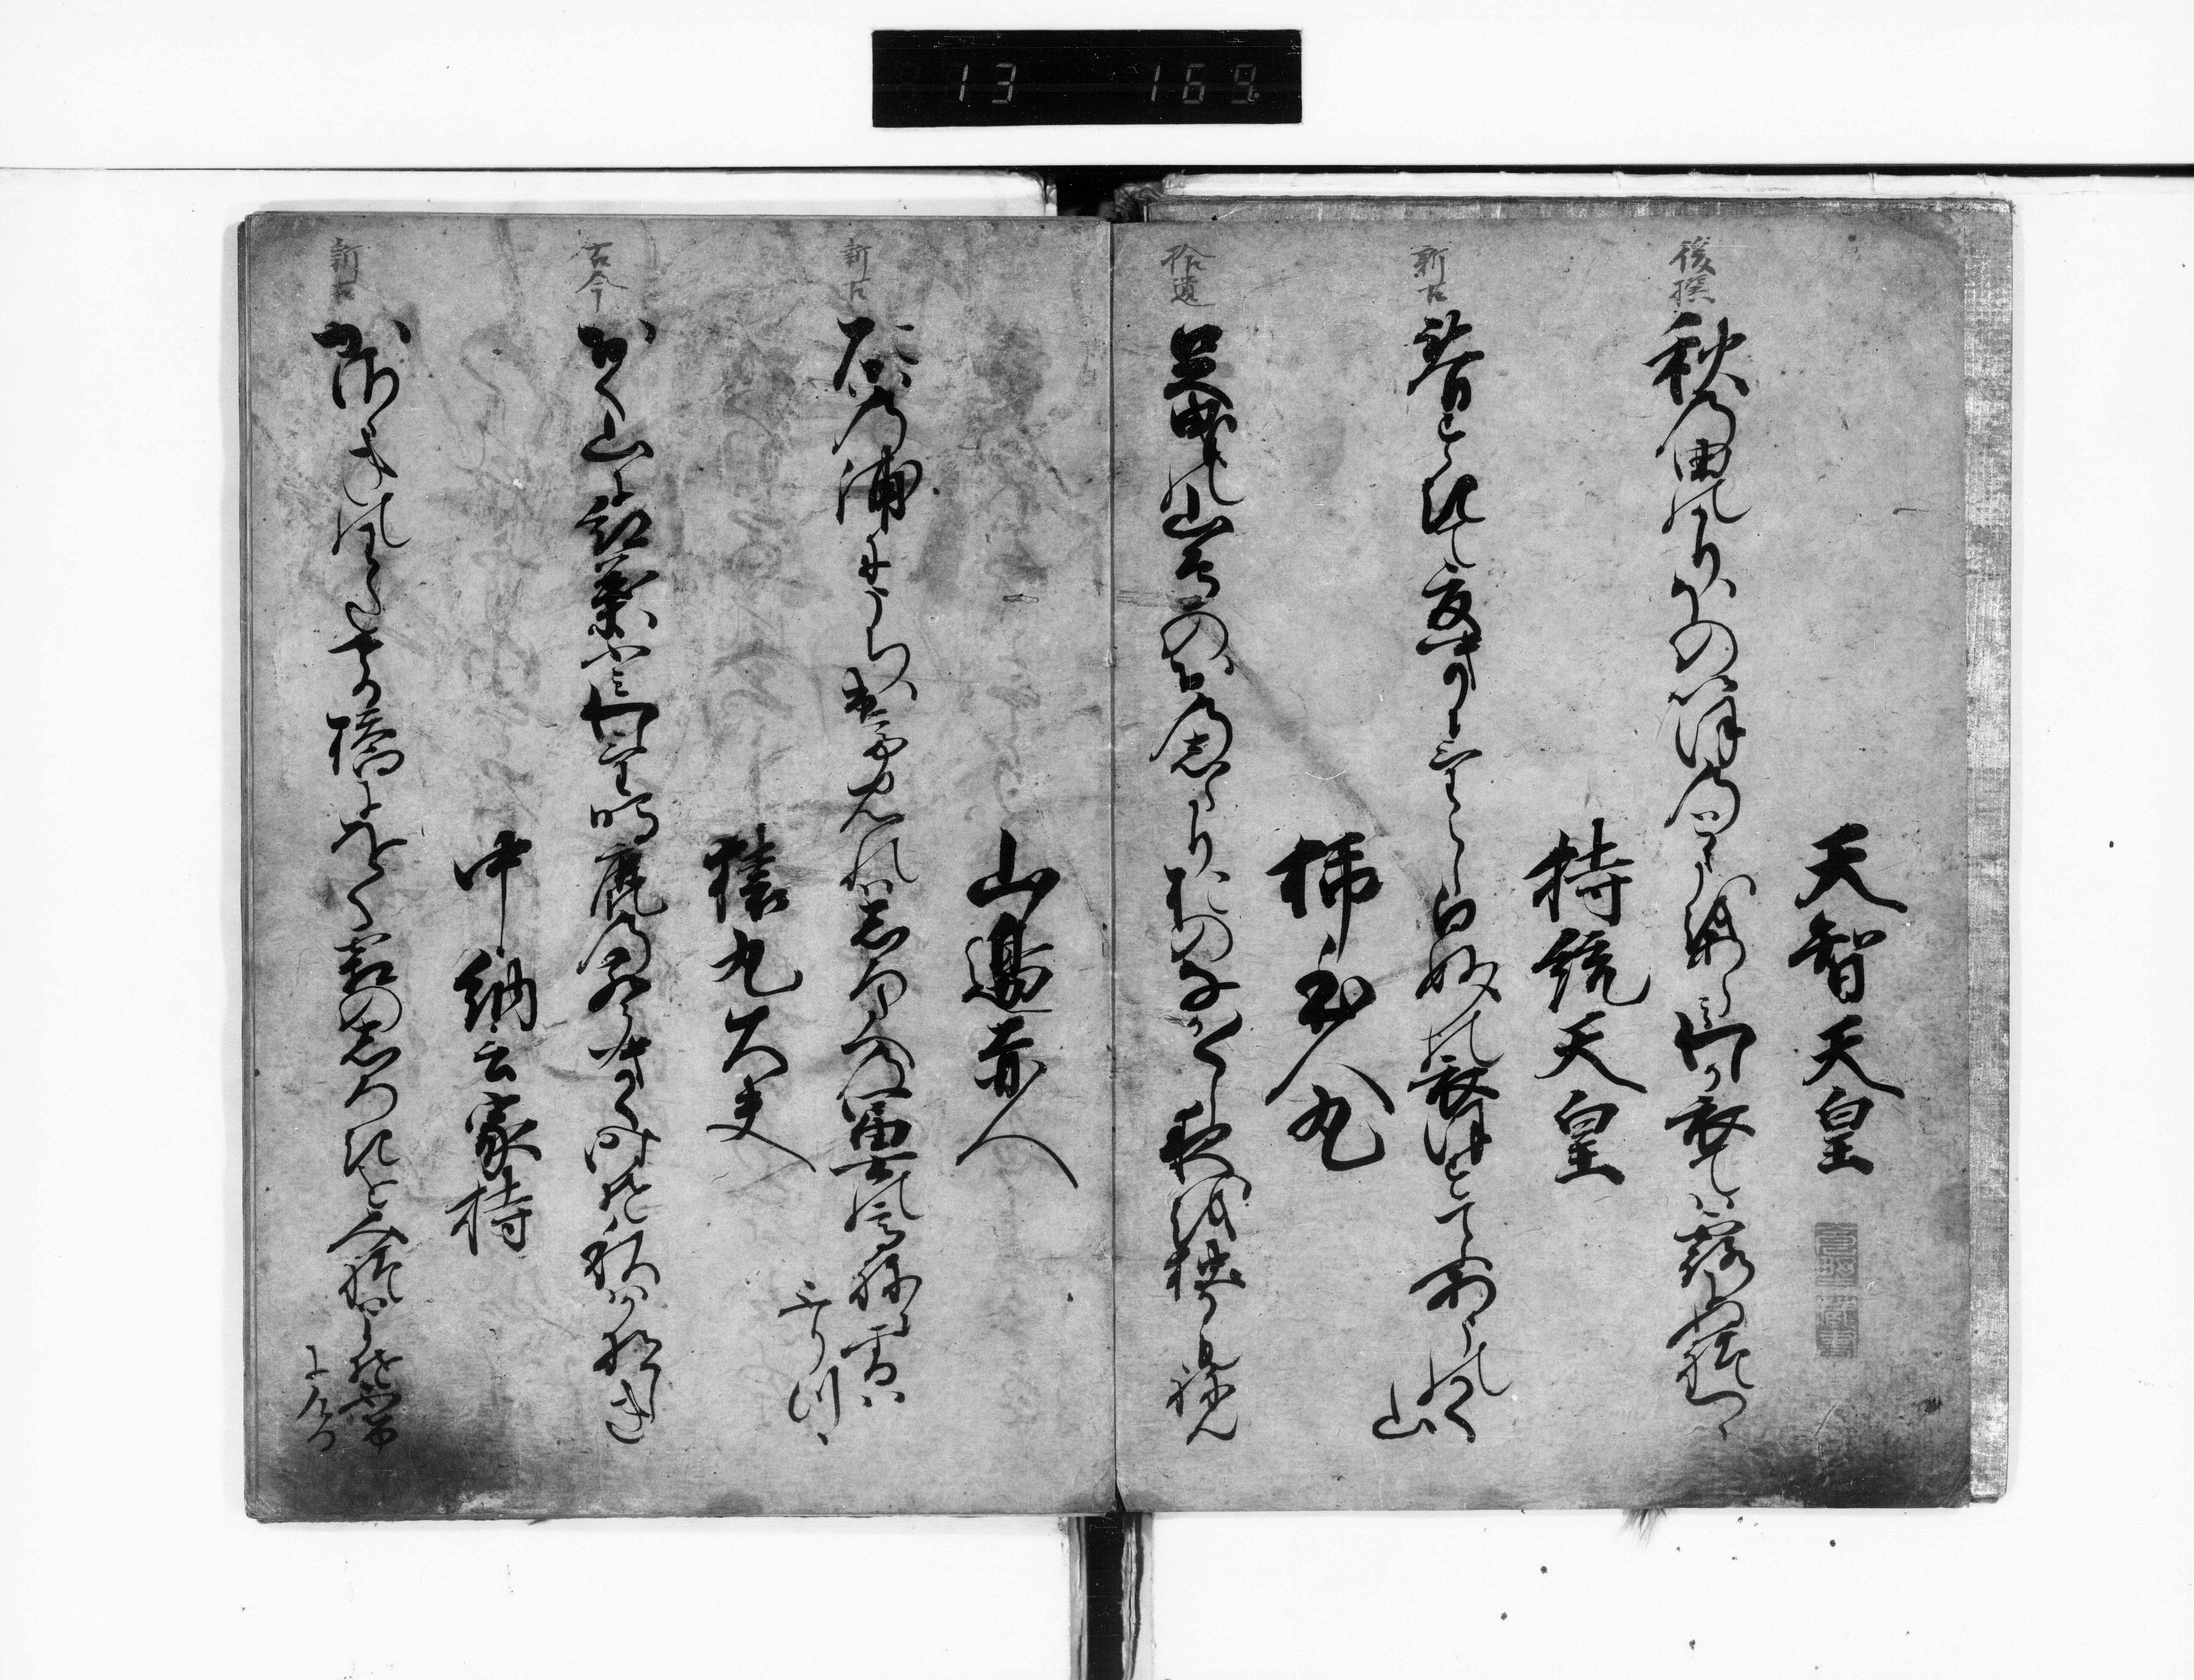 天智天皇
後撰
秋の田のかりほの庵のとまをあらみわか衣ては露にぬれつゝ
持統天皇
新古
春すきて夏きにけらし白妙の衣ほすてふあまのかく
山
柿本人丸
拾遺
足曳の山鳥のおのしたりおのなか〳〵し夜を独かもねん
山邊赤人
新古
田子の浦にうち出てみれはしろたへの富士の高ねに雪は
ふりつゝ
猿丸大夫
古今
おく山に紅葉ふみわけ鳴鹿のこゑきく時そ秋はかなしき
中納言家持
新古
かさゝきのわたせる橋にをく霜のしろきをみれは夜そ更
にける
13 169